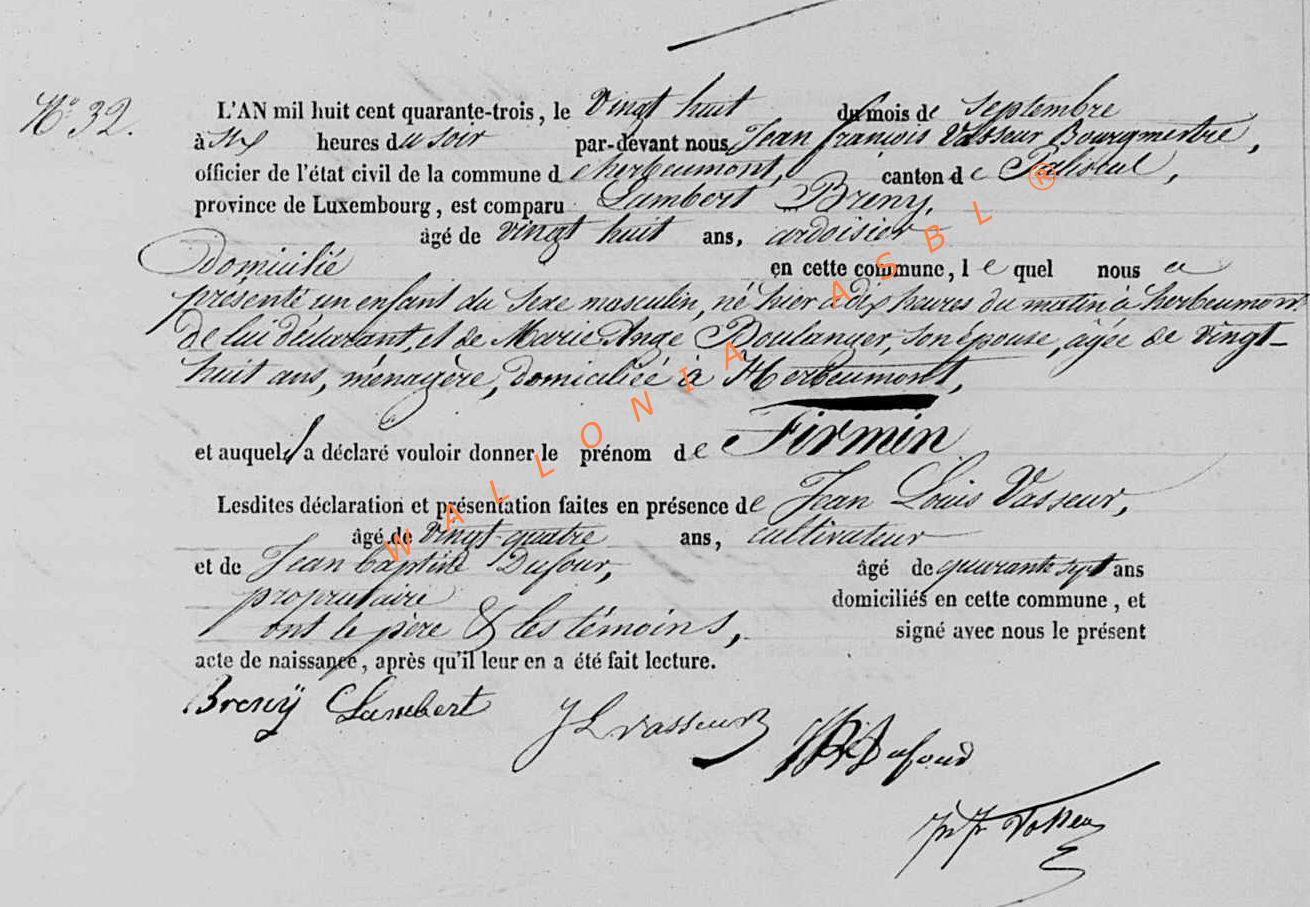 N° 32.
L'AN mil huit cent quarante-trois, le vingt huit du mois de septembre
à six heures du soir par-devant nous Jean françois Vasseur Bourgmestre,
officier de l'état civil de la commune d'herbeumont, canton de Paliseul,
province de Luxembourg, est comparu Lambert Breny,
âgé de vingt huit ans, ardoisier
Domicilié en cette commune, lequel nous a
présenté un enfant du sexe masculin, né hier à dix heures du matin à herbeumont
de lui déclarant, et de Marie Ange Boulanger, son épouse, agée de vingt-
huit ans, ménagère, domiciliée à Herbeumont,
et auquel il a déclaré vouloir donner le prénom de Firmin
Lesdites déclaration et présentation faites en présence de Jean Louis Vasseur,
âgé de vingt-quatre ans, cultivateur
et de Jean baptiste Dufour, âgé de quarante sept ans
propriétaire domiciliés en cette commune, et
ont le père & les témoins, signé avec nous le présent
acte de naissance, après qu'il leur en a été fait lecture.
Brenÿ Lambert J L vasseur
JB Dufour
WALLONIA ASBL ®